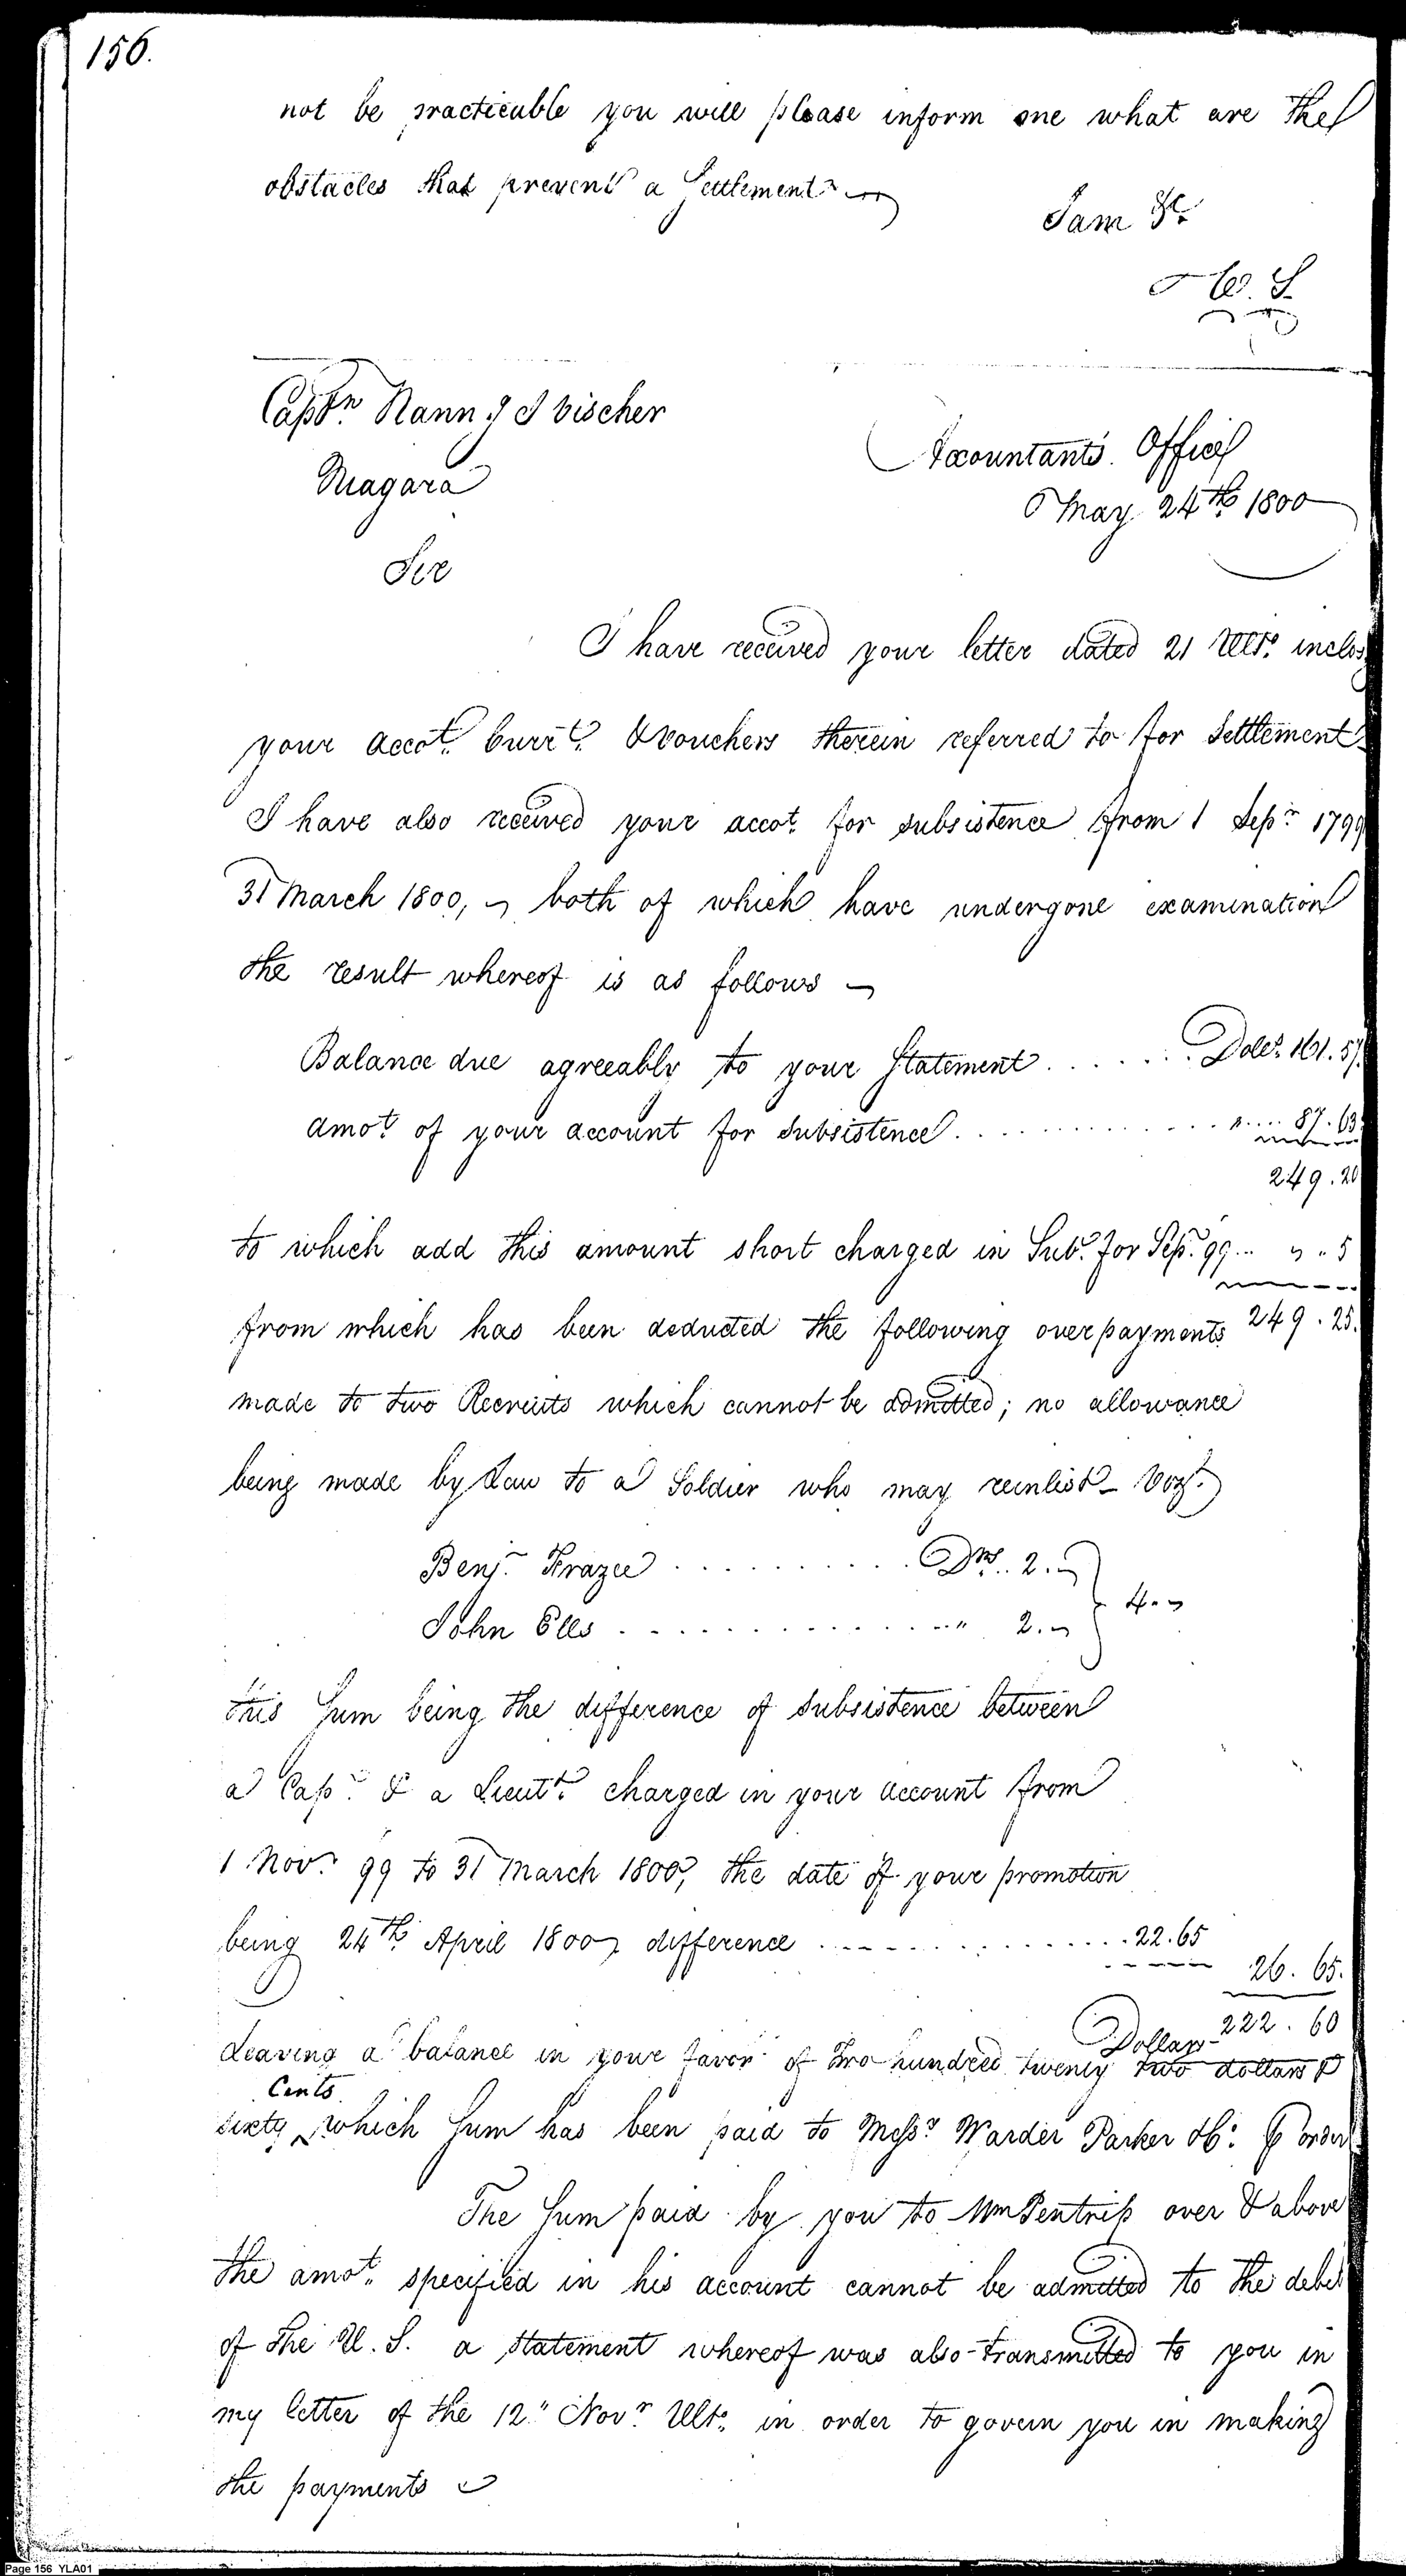 156.
not be practicable you will please inform me what are the
obstacles that prevent a Settlement
I am &c
W. S.
Captn. Nann. J Vischer
Accountants Office
Niagara
May 24th 1800
Sir
I have received your letter dated 21 Ulto. inclos
your accot. Currt. & vouchers therein referred to for Settlement
I have also received your accot. for subsistence from 1 Sepr. 1799
31 March 1800, both of which have undergone examination
the result whereof is as follows
Balance due agreeably to your Statement . . . . . . Dolls. 161.57
amot. of your account for subsistence . . . . . . . . . . . . " .... 87.63
249.20
to which add this amount short charged in Sub. for Sepr. 99 .. " .. 5
from which has been deducted the following overpayments 249.25.
made to two Recruits which cannot be admitted; no allowance
being made by Law to a Soldier who may reinlist - Vizt.
Benj. Frazee . . . . . . . . . . Drs. 2.
4.
John Ells . . . . . . . . . . . . . . " 2.
this Sum being the difference of subsistence between
a Cap. & a Lieutt. charged in your account from
1 Novr. 99 to 31 March 1800, the date of your promotion
being 24th April 1800 difference . . . . . . . . . . . . 22.65
26.65.
222.60
Dollars
Leaving a balance in your favor of Two hundred twenty two dollars &
Cents
sixty ‸ which Sum has been paid to Messr. Warder Parker &Co. ⅌ order
The Sum paid by you to Wm Pentrip over & above
the amot. specified in his account cannot be admitted to the debet
of the U. S. a statement whereof was also transmitted to you in
my letter of the 12" Novr. Ulto. in order to govern you in making
the payments
Page 156 YLA01